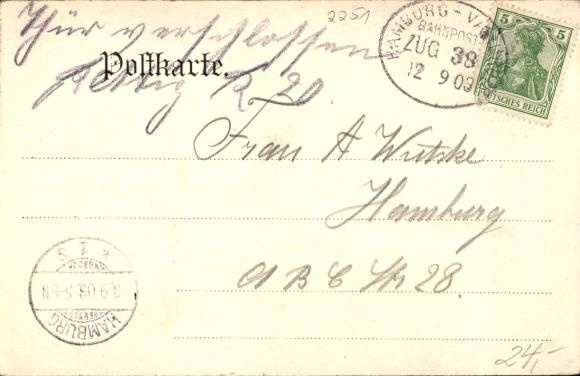 2251
Thür verschlossen
Postkarte.
HAMBURG - VA
BAHNPOST
ZUG 38
12 9 03
5 5
DEUTSCHES REICH
Frau A Wutzke
Hamburg
A B C Str 28.
* 1 S
3.9.03.5-6N
HAMBURG
24,-